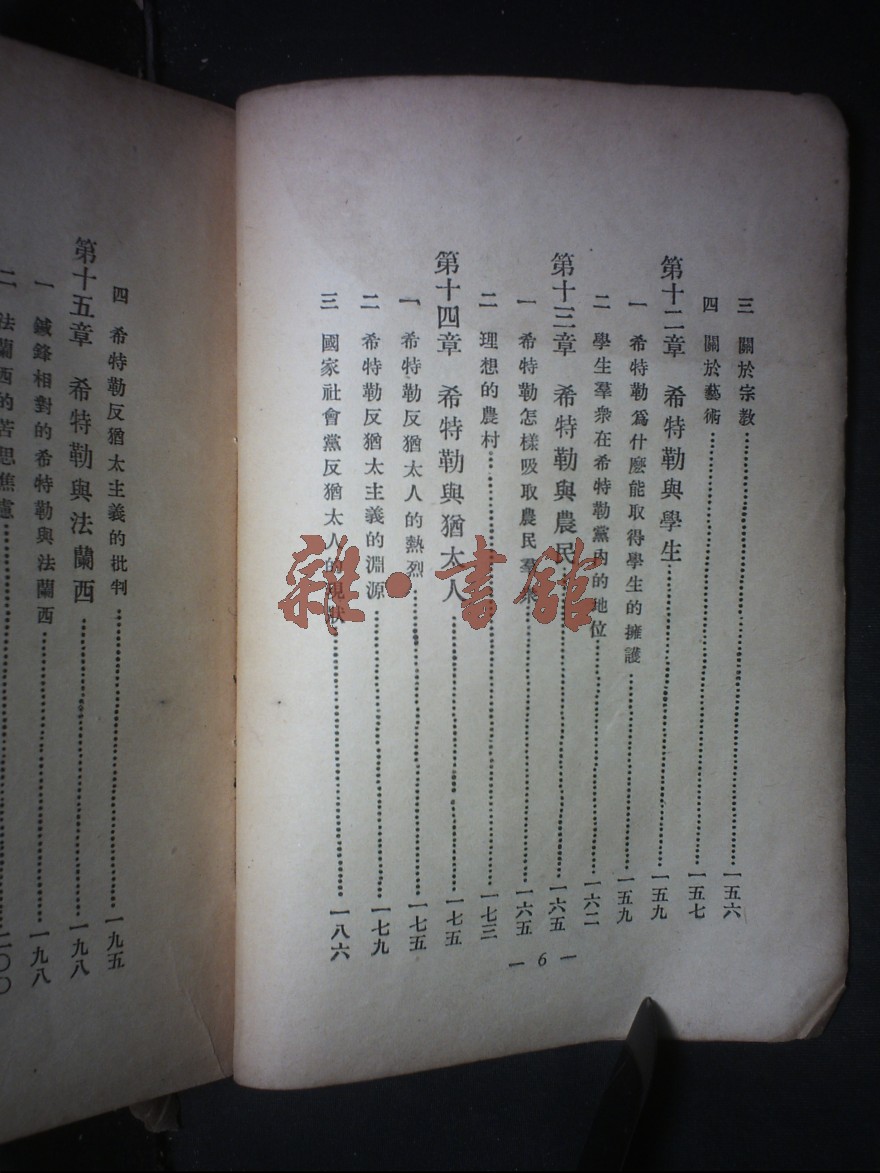 三　關於宗教………156
四　關於藝術………一五七
第十二章　希特勒與學生………一五九
一　希特勒爲什麽能取得學生的擁護………一五九
二　學生羣衆在希特勒黨內的地位………一六二
第十三章　希特勒與農民………一六五
一　希特勒怎樣吸取農民羣衆………一六五
二　理想的農村………一七三
第十四章　希特勒與猶太人………一七五
一　希特勒反猶太人的熱烈………一七五
二　希特勒反猶太主義的淵源………一七九
三　國家社會黨反猶太人的現狀………一八六
— 6 —
四　希特勒反猶太主義的批判………一九五
第十五章　希特勒與法蘭西………一九八
一　鍼鋒相對的希特勒與法蘭西………一九八
二　法蘭西的苦思焦慮………二〇〇
雜·書館